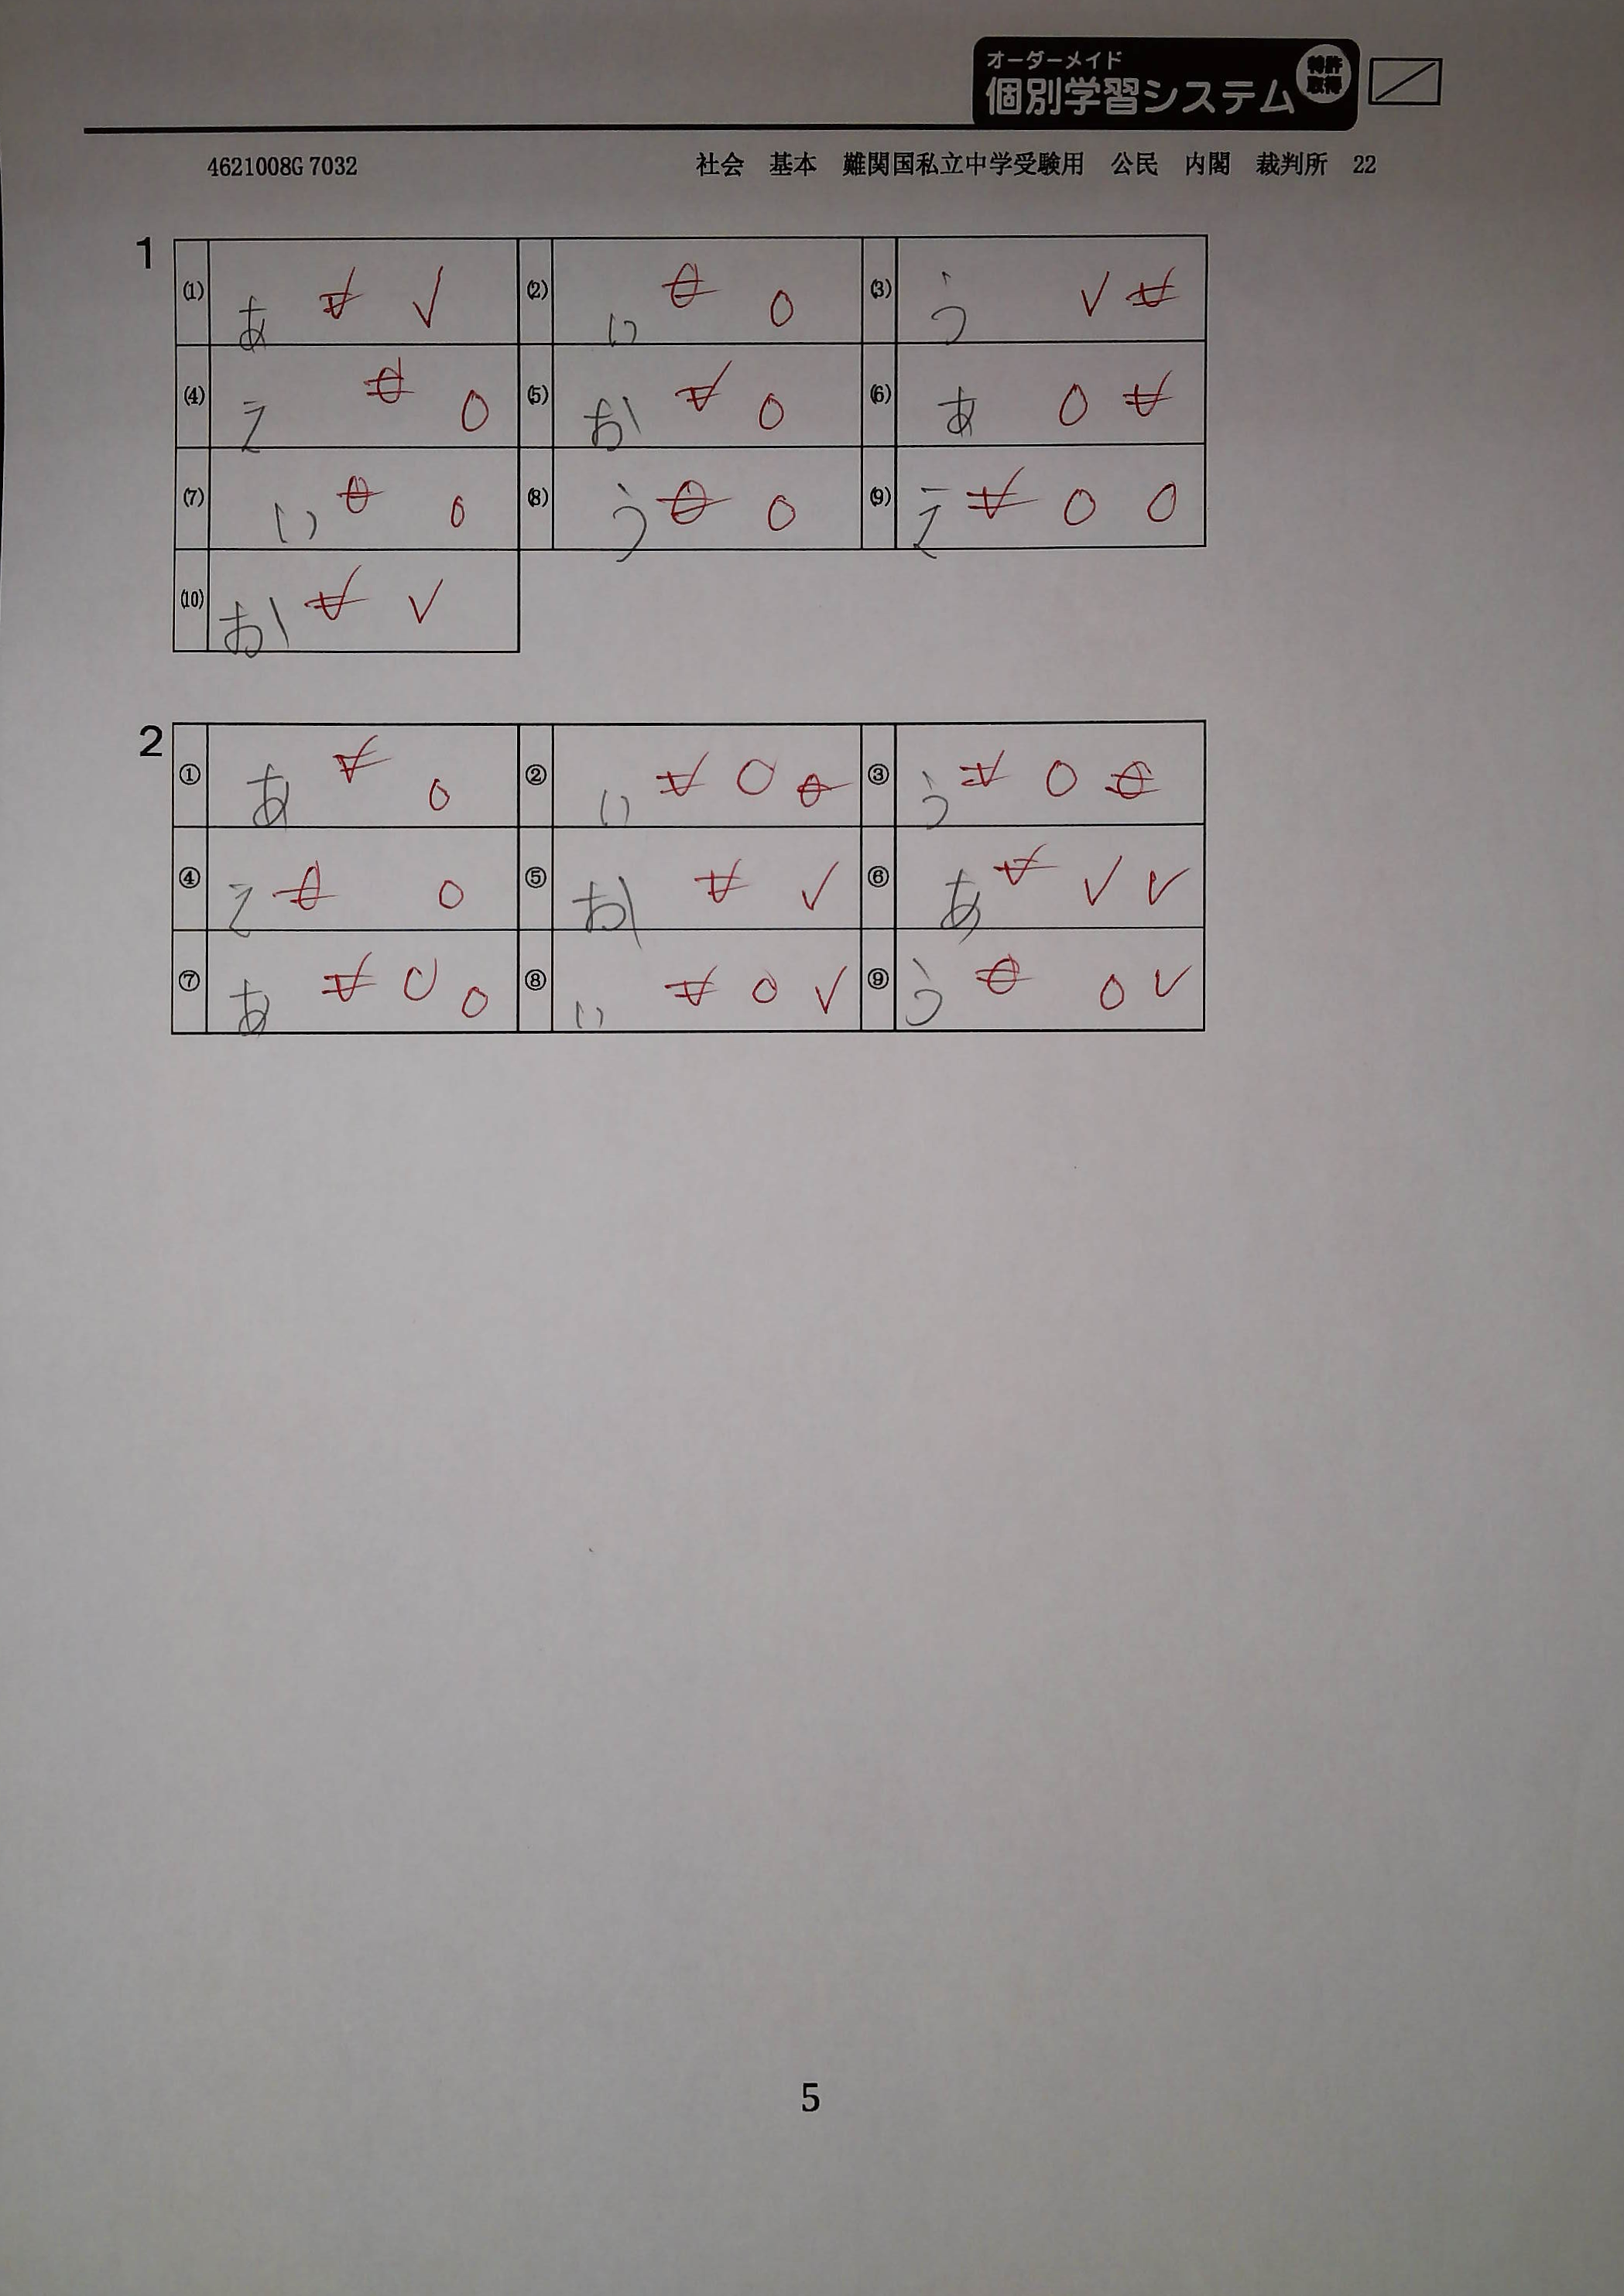 オーダーメイド
個別学習システム
特許
取得
4621008G 7032
社会 基本 難関国私立中学受験用 公民 内閣 裁判所 22
1
(1) あ (2) い (3) う
(4) え (5) お (6) あ
(7) い (8) う (9) え
(10) お
2
① あ ② い ③ う
④ え ⑤ お ⑥ あ
⑦ あ ⑧ い ⑨ う
5